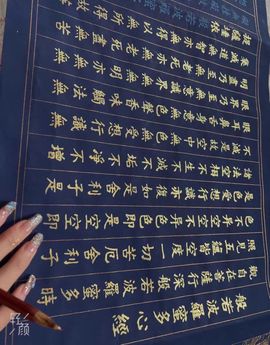 般若波羅蜜多心經
觀自在菩薩行深般若波羅蜜多時
照見五蘊皆空度一切苦厄舍利子
色不異空空不異色色即是空空即
是色受想行識亦復如是舍利子是
諸法空相不生不滅不垢不淨不增
不減是故空中無色無受想行識無
眼耳鼻舌身意無色聲香味觸法無
眼界乃至無意識界無無明亦無無
明盡乃至無老死亦無老死盡無苦
集滅道無智亦無得以無所得故菩
提薩埵依般若波羅蜜
轻颜